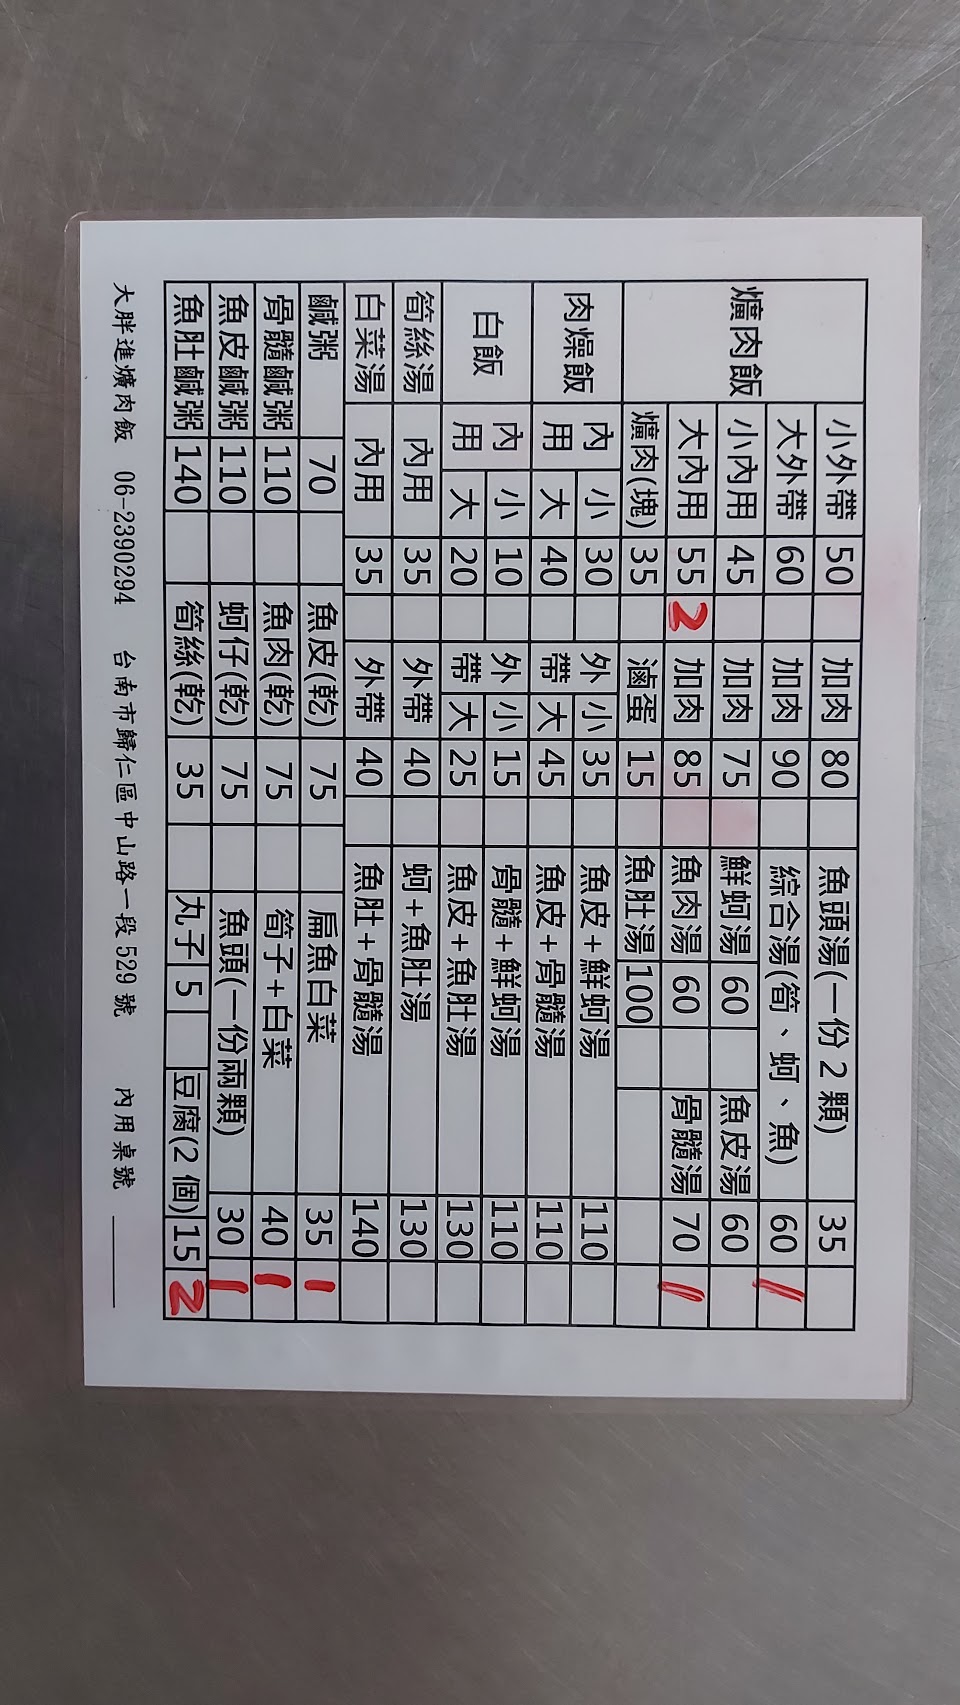 爌肉飯 小外帶 50 加肉 80 魚頭湯(一份 2 顆) 35
大外帶 60 加肉 90 綜合湯(筍、蚵、魚) 60 1
小內用 45 加肉 75 鮮蚵湯 60 魚皮湯 60
大內用 55 2 加肉 85 魚肉湯 60 骨髓湯 70 1
爌肉(塊) 35 滷蛋 15 魚肚湯 100
肉燥飯 內用 小 30 外帶 小 35 魚皮+鮮蚵湯 110
大 40 大 45 魚皮+骨髓湯 110
白飯 內用 小 10 外帶 小 15 骨髓+鮮蚵湯 110
大 20 大 25 魚皮+魚肚湯 130
筍絲湯 內用 35 外帶 40 蚵+魚肚湯 130
白菜湯 內用 35 外帶 40 魚肚+骨髓湯 140
鹹粥 70 魚皮(乾) 75 扁魚白菜 35 1
骨髓鹹粥 110 魚肉(乾) 75 筍子+白菜 40 1
魚皮鹹粥 110 蚵仔(乾) 75 魚頭(一份兩顆) 30 1
魚肚鹹粥 140 筍絲(乾) 35 丸子 5 豆腐(2 個) 15 2
大胖進爌肉飯 06-2390294 台南市歸仁區中山路一段 529 號 內用桌號